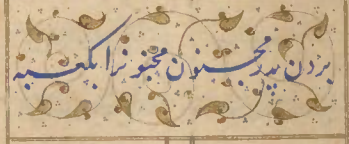 بردن پدر مجنون مجنونرا بکعبه